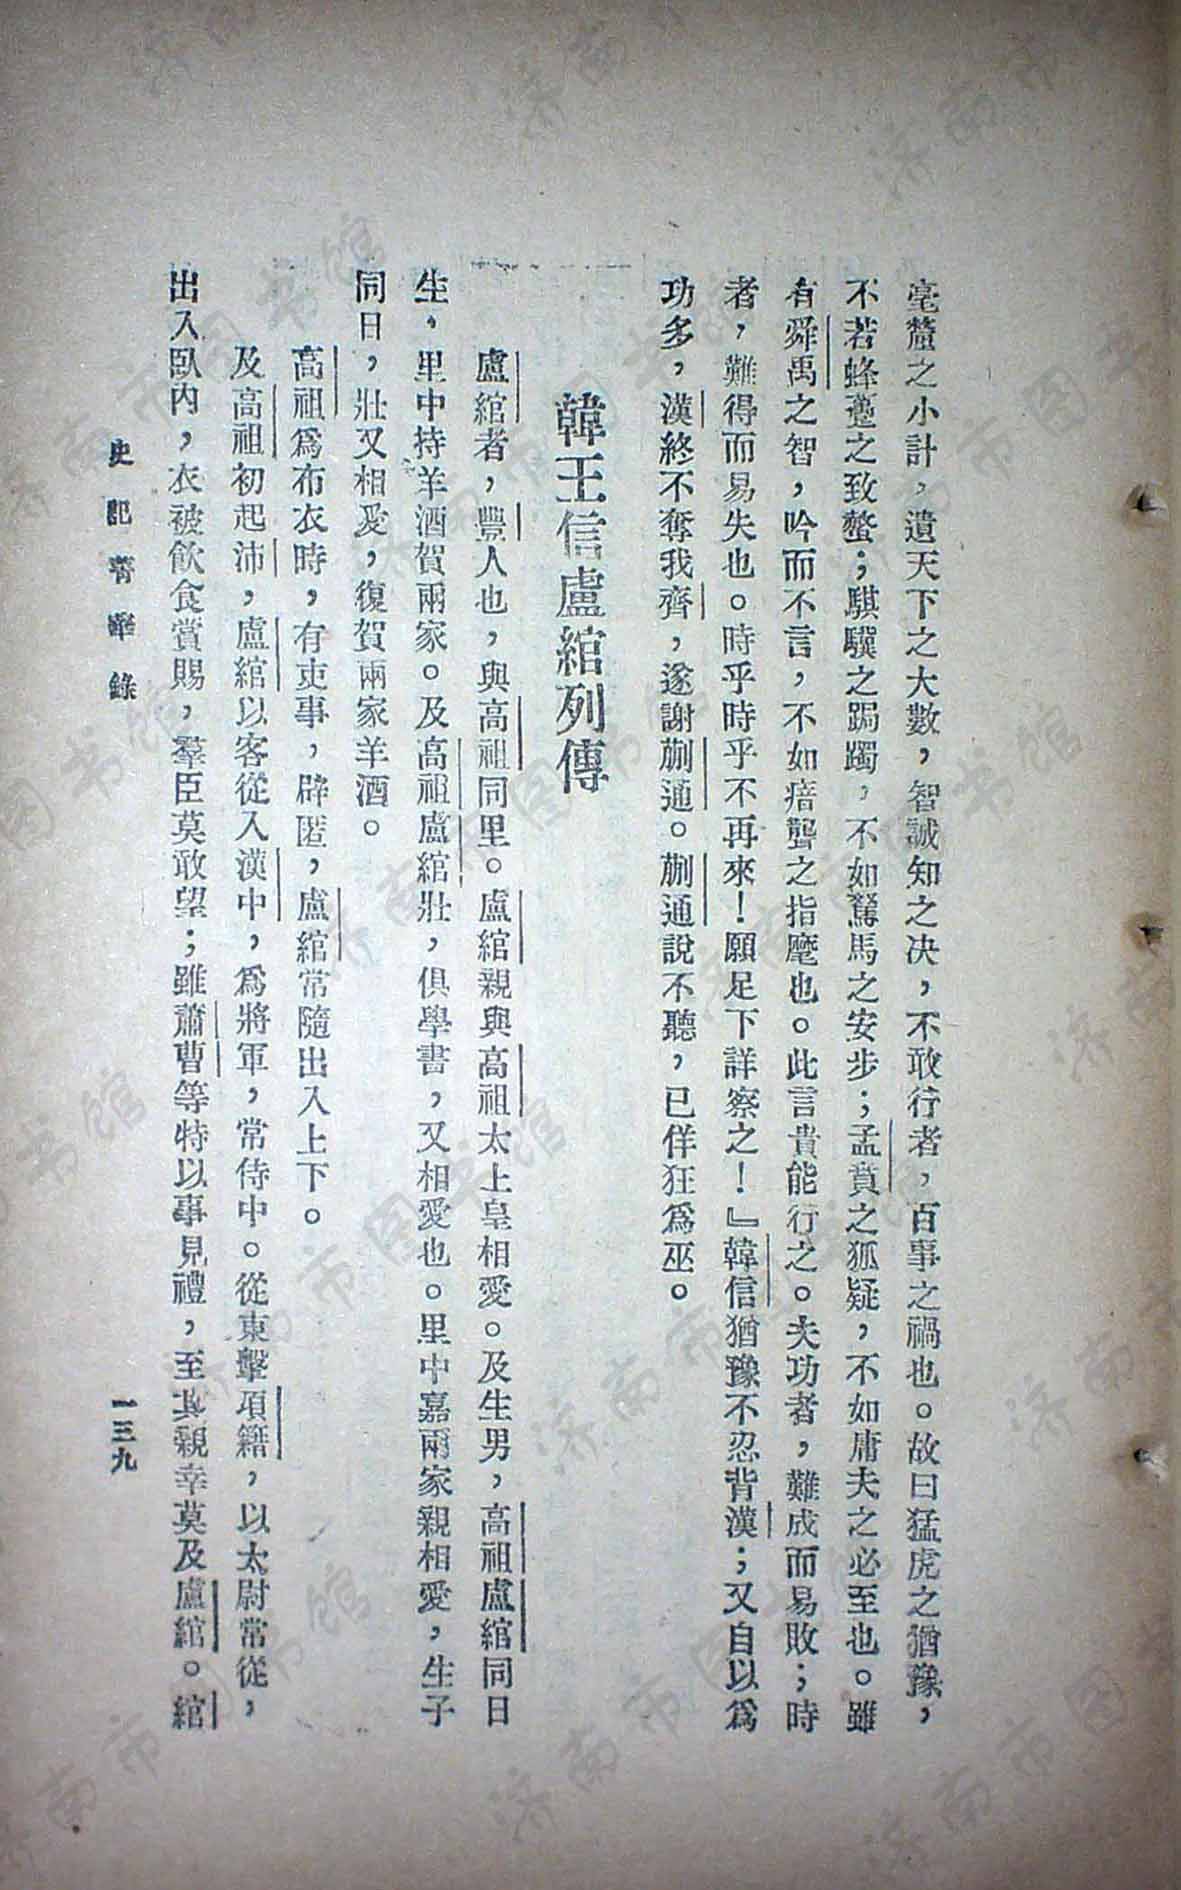 毫釐之小計，遺天下之大數，智誠知之决，不敢行者，百事之禍也。故曰猛虎之猶豫，
不若蜂蠆之致螫；騏驥之跼躅，不如駑馬之安步；孟賁之狐疑，不如庸夫之必至也。雖
有舜禹之智，吟而不言，不如瘖聾之指麾也。此言貴能行之。夫功者，難成而易敗；時
者，難得而易失也。時乎時乎不再來！願足下詳察之！』韓信猶豫不忍背漢；又自以爲
功多，漢終不奪我齊，遂謝蒯通。蒯通說不聽，已佯狂爲巫。
韓王信盧綰列傳
盧綰者，豐人也，與高祖同里。盧綰親與高祖太上皇相愛。及生男，高祖盧綰同日
生，里中持羊酒賀兩家。及高祖盧綰壯，俱學書，又相愛也。里中嘉兩家親相愛，生子
同日，壯又相愛，復賀兩家羊酒。
高祖爲布衣時，有吏事，辟匿，盧綰常隨出入上下。
及高祖初起沛，盧綰以客從入漢中，爲將軍，常侍中。從東擊項籍，以太尉常從，
出入臥內，衣被飲食賞賜，羣臣莫敢望；雖蕭曹等特以事見禮，至其親幸莫及盧綰。綰
史記菁華錄
一三九
济南市图书馆